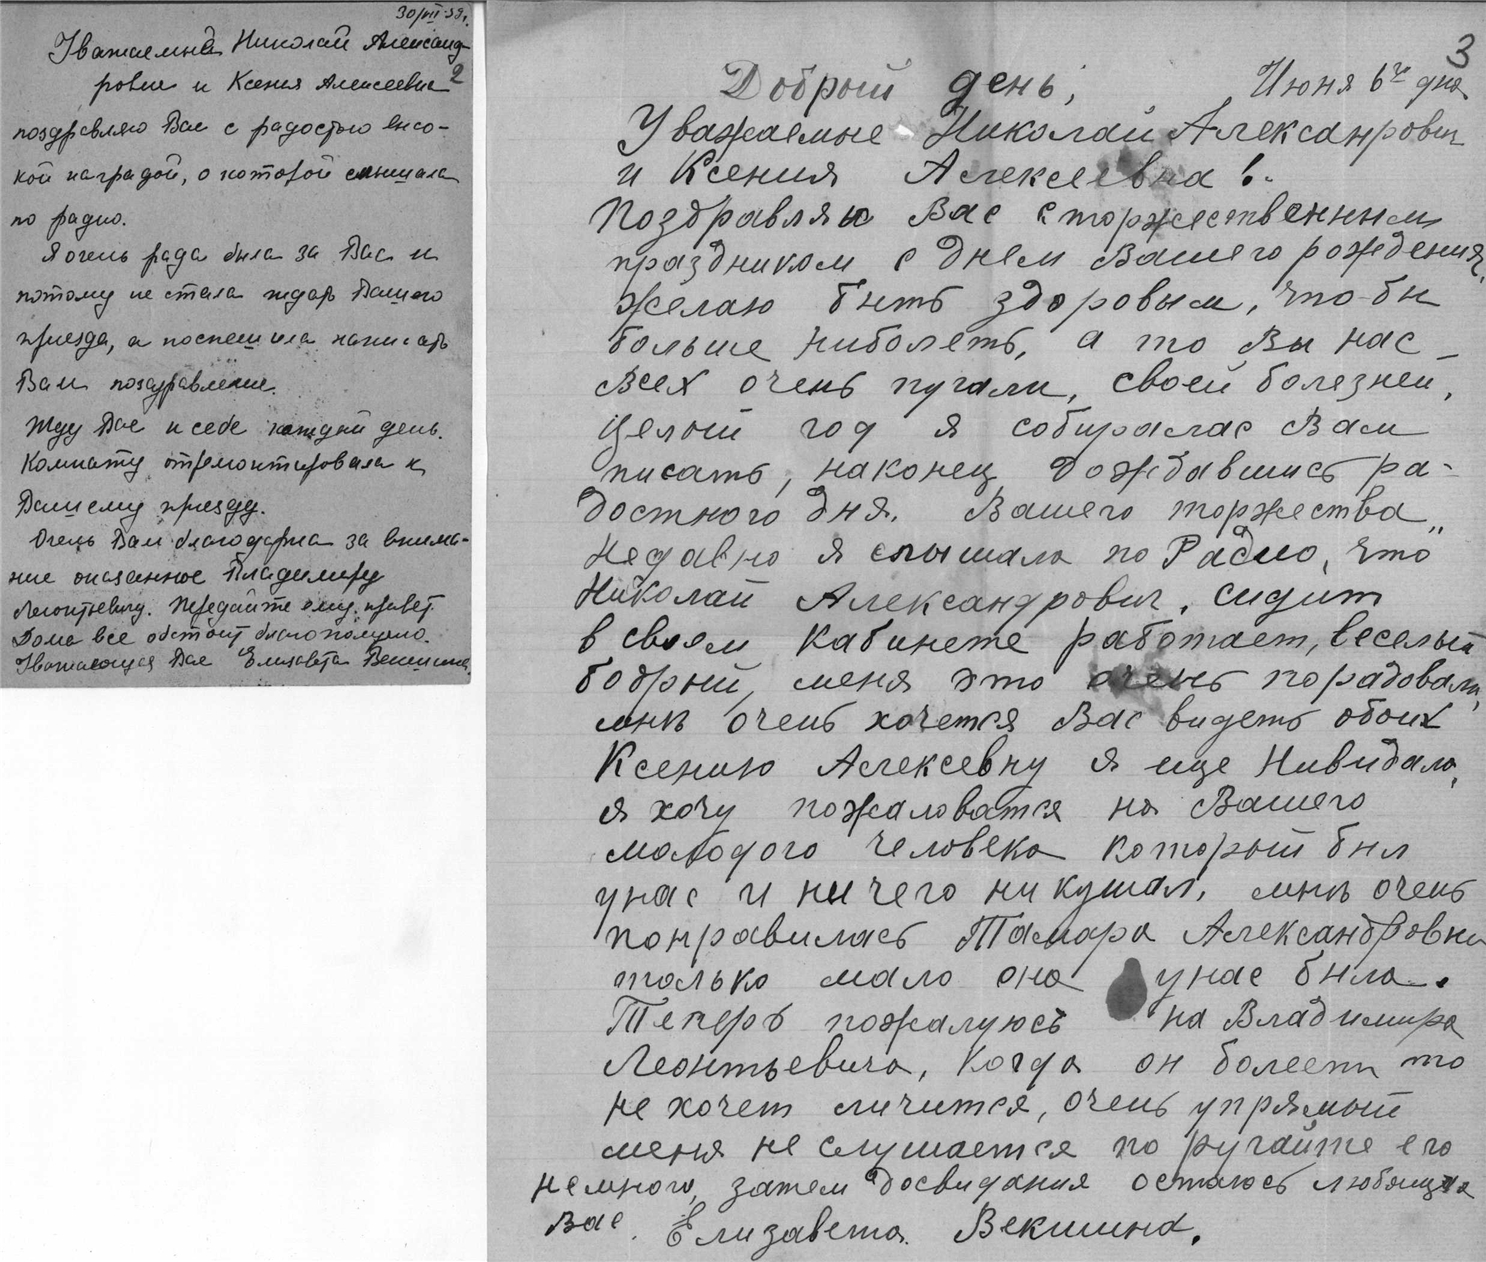 30/VII-53г.
Уважаемые Николай Александ-
рович и Ксения Алексеевна 2
поздравляю Вас с радостью высо-
кой наградой, о которой слышала
по радио.
Я очень рада была за Вас и
потому не стала ждать Вашего
приезда, а поспешила написать
Вам поздравление.
Жду Вас к себе каждый день.
Комнату отремонтировала к
Вашему приезду.
Очень Вам благодарна за внима-
ние оказанное Владимиру
Леонтьевичу. Передайте ему привет.
Дома все обстоит благополучно.
Уважающая Вас Елизавета Векшина.
3
Добрый день, Июня 6го дня
Уважаемые Николай Александрович
и Ксения Алексеевна!
Поздравляю Вас с торжественным
праздником с днем Вашего рождения,
желаю быть здоровым, что-бы
больше ниболеть, а то Вы нас
всех очень пугали, своей болезней,
целый год я собиралас Вам
писать, наконец дождавшись ра-
достного дня. Вашего торжества,,
недавно я слышала по Радио, что
Николай Александрович, сидит
в своем кабинете работает, веселый
бодрый, меня это очень порадовало,
мнъ очень хочется Вас видеть обоих
Ксению Алексевну я еще Нивидала,
я хочу пожаловатся на Вашего
молодого человека который был
унас и ни чего ни кушал, мнъ очень
понравилась Тамара Александровна
только мало она унас была.
Теперь пожалуюсь на Владимира
Леонтьевича, когда он болеет то
не хочет личится, очень упрямый
меня не слушается по ругайте его
немного, затем досвидания остаюсь любящая
Вас. Елизавета Векшина.